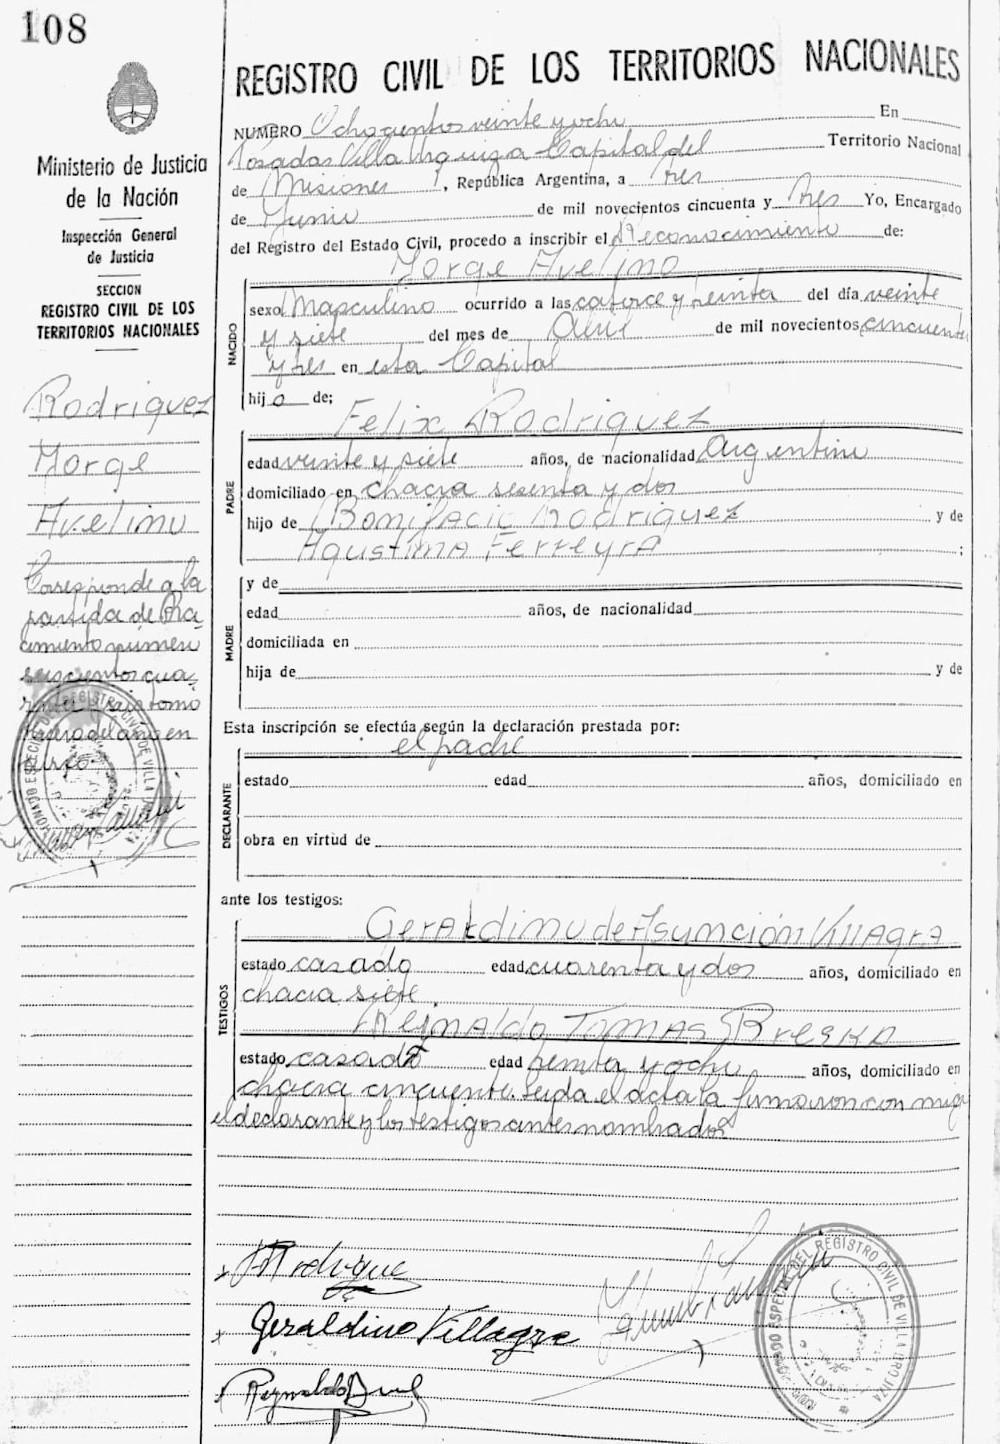 108
REGISTRO CIVIL DE LOS TERRITORIOS NACIONALES
Ministerio de Justicia
de la Nación
Inspección General
de Justicia
SECCION
REGISTRO CIVIL DE LOS
TERRITORIOS NACIONALES
Rodriguez
Jorge
Avelino
Corresponde a la
partida de Na-
cimiento número
seiscientos cua-
renta y seis tomo
del año en
curso.
NUMERO Ochocientos veinte y ocho En
Posadas Villa Urquiza Capital del Territorio Nacional
de Misiones, República Argentina, a tres
de Junio de mil novecientos cincuenta y tres Yo, Encargado
del Registro del Estado Civil, procedo a inscribir el Reconocimiento de:
Jorge Avelino
NACIDO
sexo Masculino ocurrido a las catorce y treinta del día veinte
y siete del mes de Abril de mil novecientos cincuenta
y tres en esta Capital
hijo de;
Felix Rodriguez
PADRE
edad veinte y siete años, de nacionalidad Argentino
domiciliado en chacra sesenta y dos
hijo de Bonifacio Rodriguez y de
Agustina Ferreyra ;
MADRE
y de
edad años, de nacionalidad
domiciliada en
hija de y de
Esta inscripción se efectúa según la declaración prestada por:
el padre
DECLARANTE
estado edad años, domiciliado en
obra en virtud de
ante los testigos:
TESTIGOS
Geraldino de Asunción Villagra
estado casado edad cuarenta y dos años, domiciliado en
chacra siete.
Reinaldo Tomas
estado casado edad treinta y ocho años, domiciliado en
chacra cincuenta. Leida el acta la firmaron conmigo
el declarante y los testigos antes nombrados
Geraldino Villagra
Reynaldo
REGISTRO CIVIL DE VILLA URQUIZA